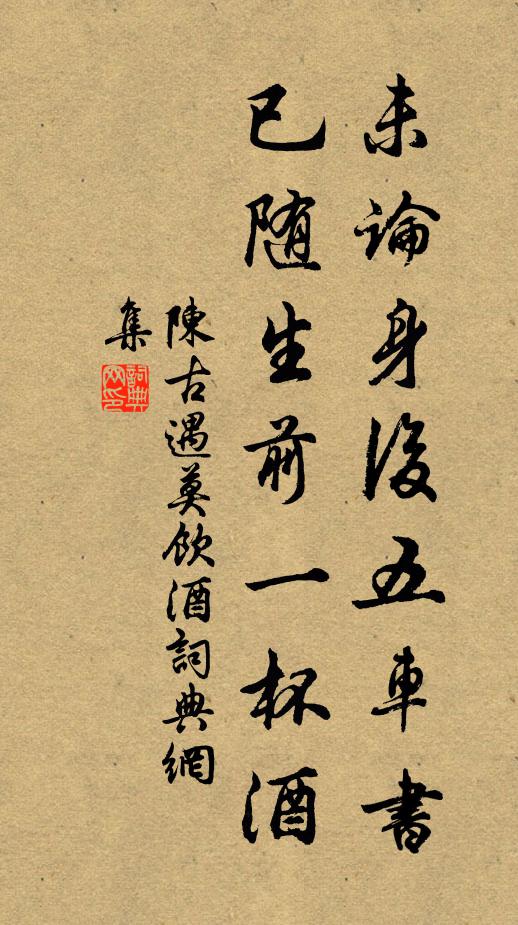 未論身後五車書
已随生前一杯酒
陳古遇莫飲酒詞典網
集
詞典網印